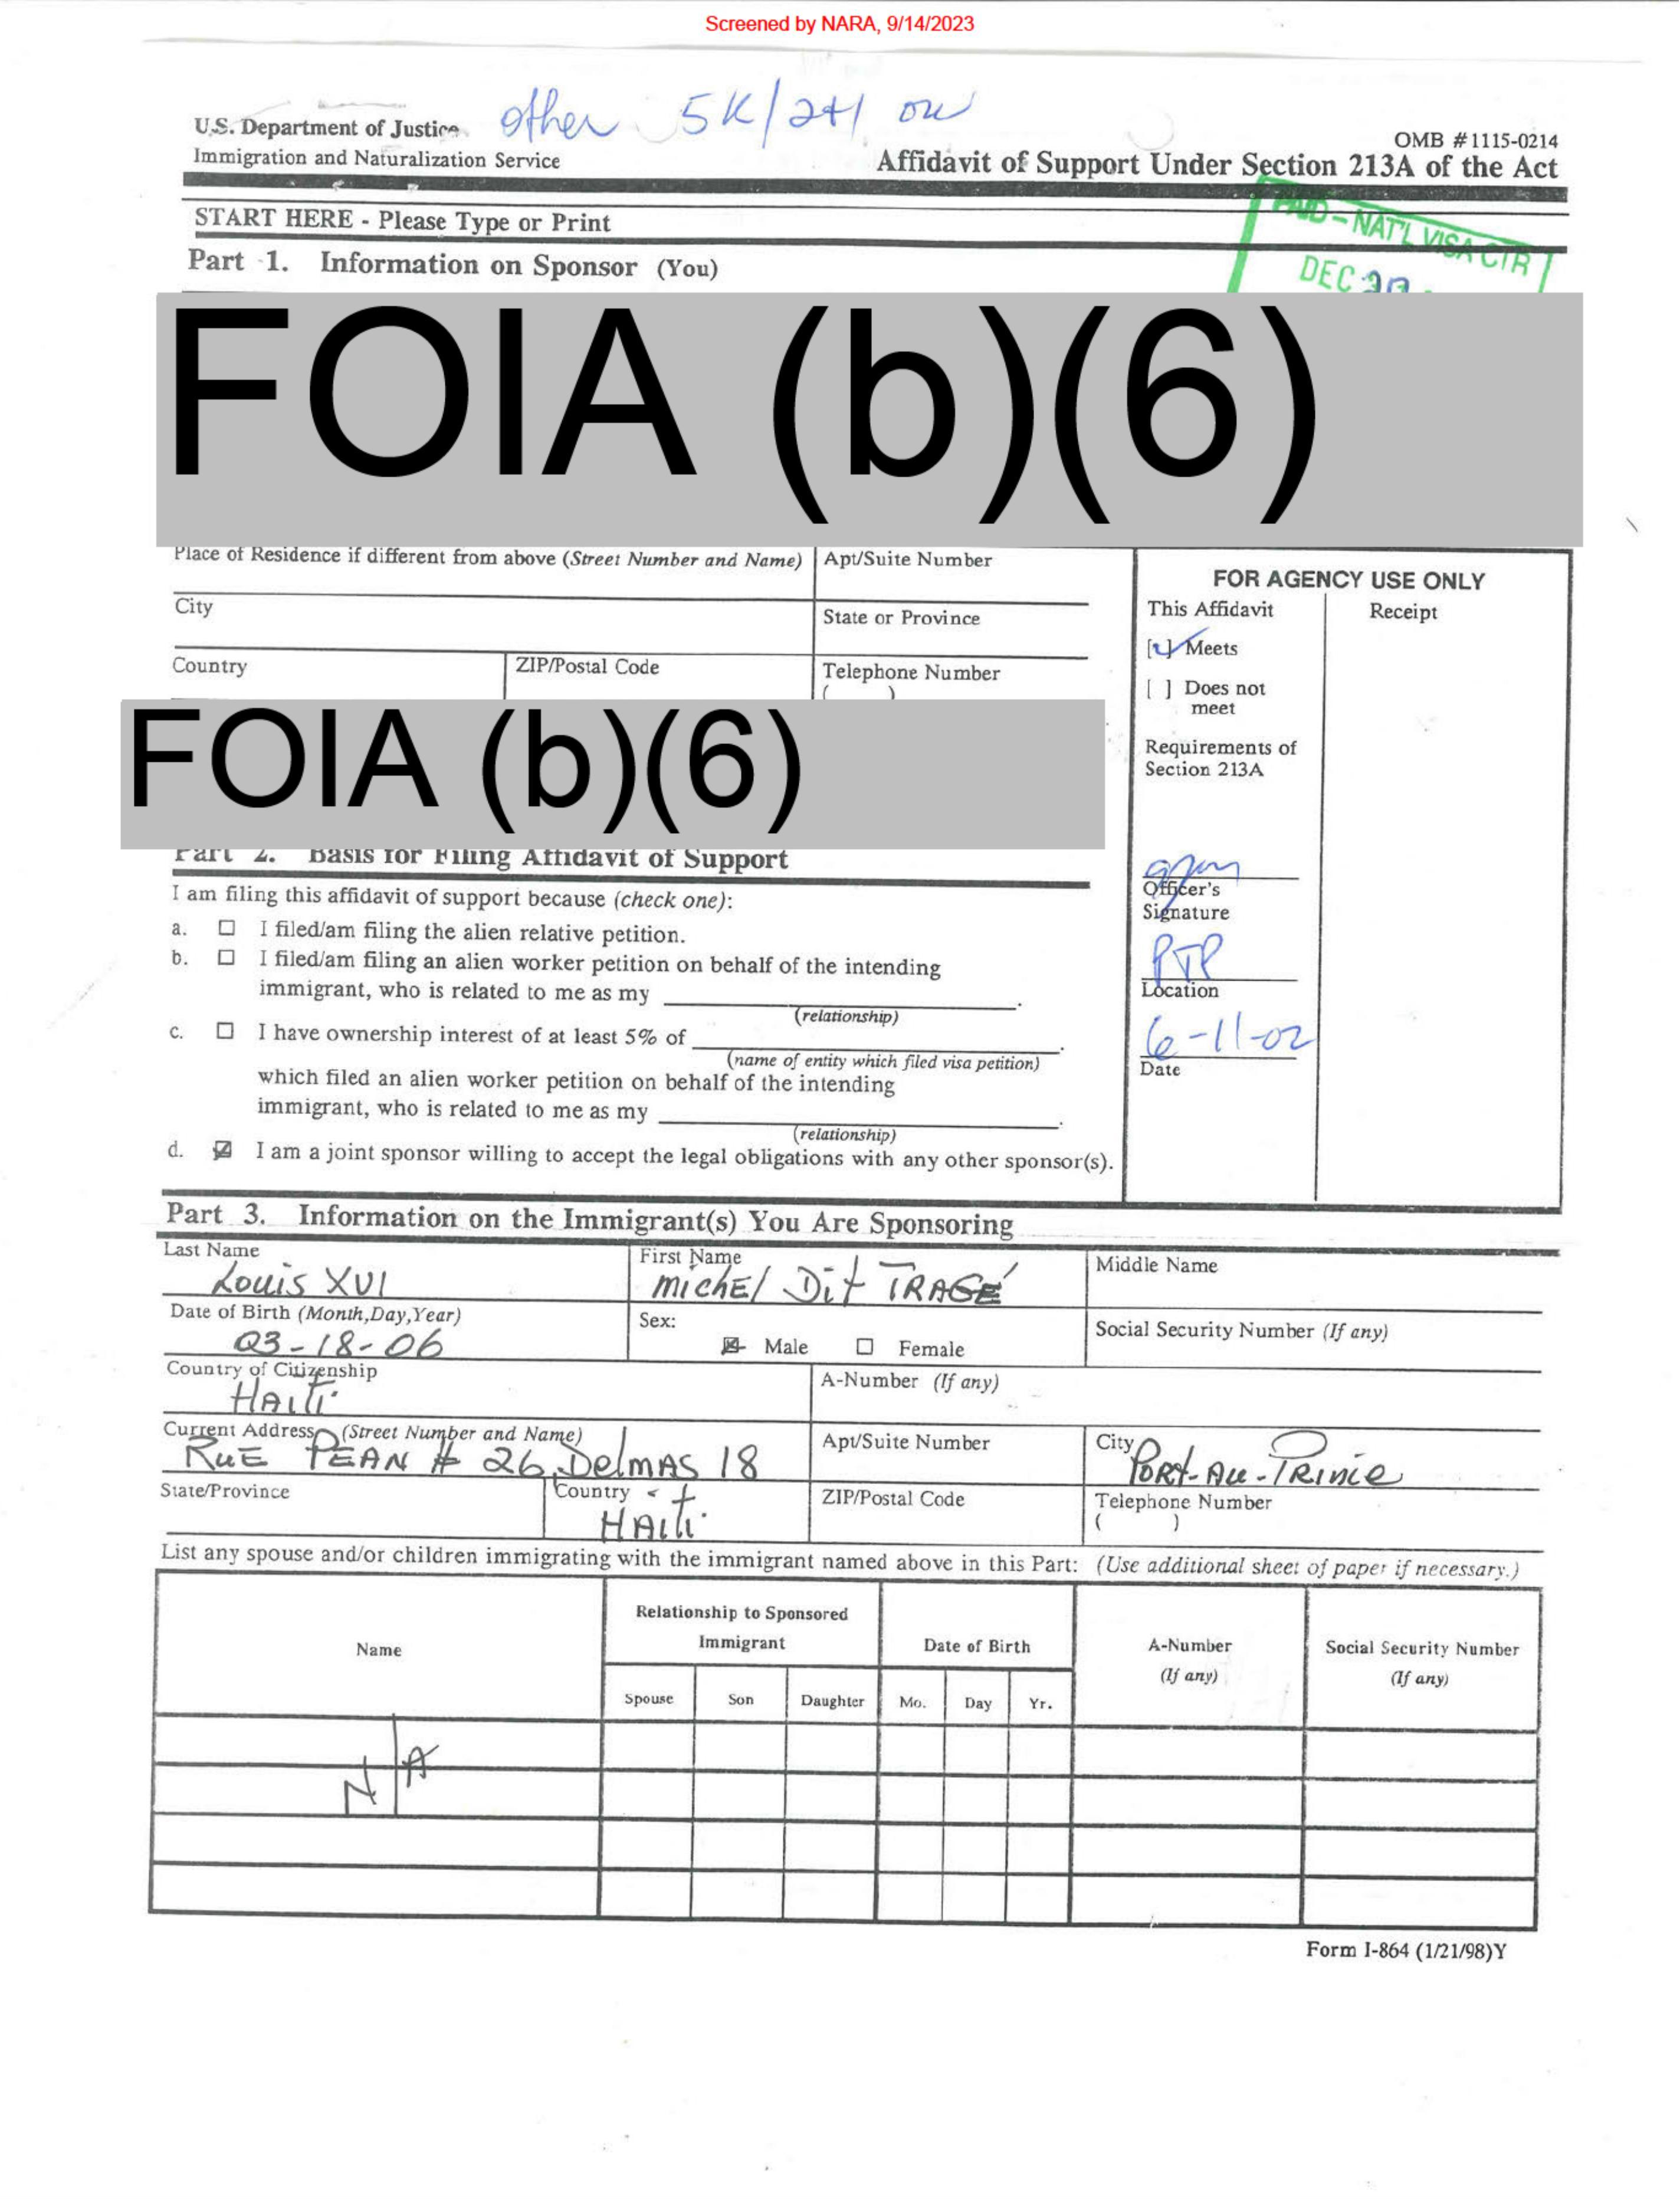 Screened by NARA, 9/14/2023
other 5K/2+1 ou
U.S. Department of Justice
Immigration and Naturalization Service
OMB #1115-0214
Affidavit of Support Under Section 213A of the Act
START HERE - Please Type or Print
- NAT'L VISA CTR
DEC
Part 1. Information on Sponsor (You)
FOIA (b)(6)
Place of Residence if different from above (Street Number and Name)
Apt/Suite Number
City
State or Province
Country
ZIP/Postal Code
Telephone Number
( )
FOR AGENCY USE ONLY
This Affidavit
Receipt
[✓] Meets
[ ] Does not
meet
Requirements of
Section 213A
Officer's
Signature
PTP
Location
6-11-02
Date
FOIA (b)(6)
Part 2. Basis for Filing Affidavit of Support
I am filing this affidavit of support because (check one):
a. ☐ I filed/am filing the alien relative petition.
b. ☐ I filed/am filing an alien worker petition on behalf of the intending
immigrant, who is related to me as my
(relationship)
c. ☐ I have ownership interest of at least 5% of
(name of entity which filed visa petition)
which filed an alien worker petition on behalf of the intending
immigrant, who is related to me as my
(relationship)
d. ☒ I am a joint sponsor willing to accept the legal obligations with any other sponsor(s).
Part 3. Information on the Immigrant(s) You Are Sponsoring
Last Name
Louis XVI
First Name
MichEl Dit TRAGÉ
Middle Name
Date of Birth (Month,Day,Year)
03-18-06
Sex:
☒ Male ☐ Female
Social Security Number (If any)
Country of Citizenship
HAiti
A-Number (If any)
Current Address (Street Number and Name)
RuE PEAN # 26, DelmAS 18
Apt/Suite Number
City
PORt-Au-PRince
State/Province
Country
HAiti
ZIP/Postal Code
Telephone Number
( )
List any spouse and/or children immigrating with the immigrant named above in this Part: (Use additional sheet of paper if necessary.)
Name
Relationship to Sponsored
Immigrant
Date of Birth
A-Number
(If any)
Social Security Number
(If any)
Spouse Son Daughter Mo. Day Yr.
N/A
Form I-864 (1/21/98)Y